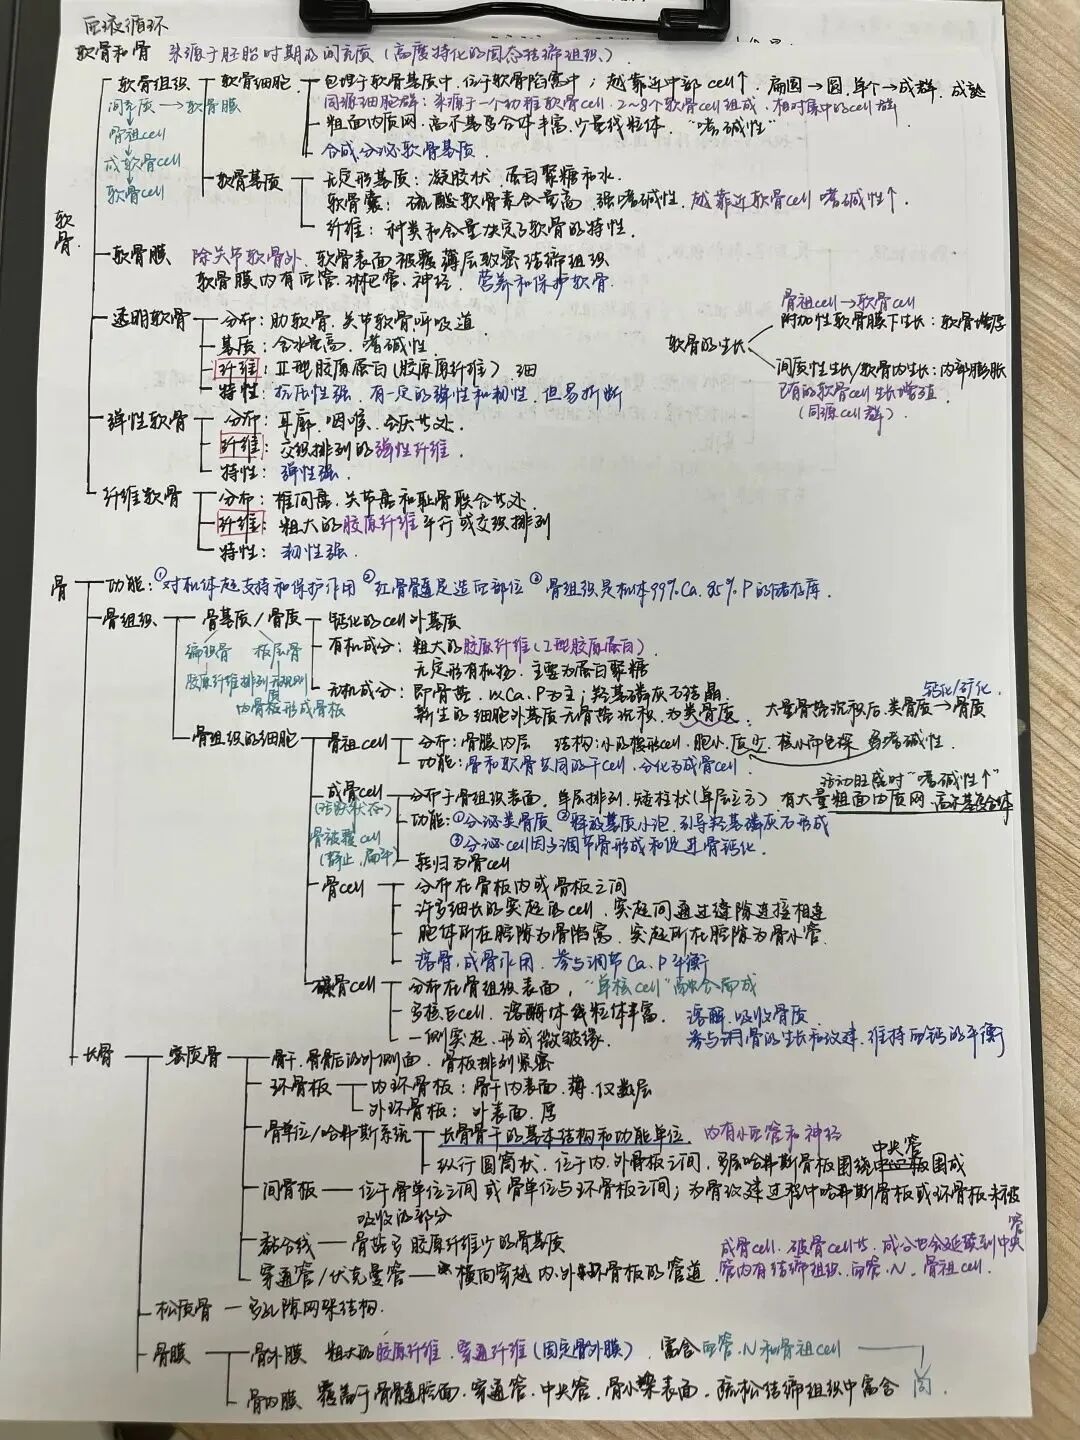 血液循环
软骨和骨 来源于胚胎时期的间充质（高度特化的固态结缔组织）
软骨组织 软骨细胞 包埋于软骨基质中，位于软骨陷窝中；越靠近中部cell↑，扁圆→圆，单个→成群，成熟
间充质→软骨膜 同源细胞群：来源于一个幼稚软骨cell，2~8个软骨cell组成，相对集中的cell群
骨祖cell 粗面内质网、高尔基复合体丰富，少量线粒体，“嗜碱性”
成软骨cell 合成、分泌软骨基质
软骨cell 软骨基质 无定形基质：凝胶状，蛋白聚糖和水
软骨囊：硫酸软骨素含量高，强嗜碱性，越靠近软骨cell嗜碱性↑
软骨 纤维：种类和含量决定了软骨的特性
软骨膜 除关节软骨外，软骨表面被覆薄层致密结缔组织
软骨膜内有血管、淋巴管、神经，营养和保护软骨
透明软骨 分布：肋软骨、关节软骨呼吸道
基质：含水量高，嗜碱性
纤维：Ⅱ型胶原蛋白（胶原原纤维）细
特性：抗压性强，有一定的弹性和韧性，但易折断
软骨的生长
骨祖cell→软骨cell
附加性软骨膜下生长：软骨增厚
间质性生长/软骨内生长：内部膨胀
已有的软骨cell生长增殖
（同源cell群）
弹性软骨 分布：耳廓、咽喉、会厌等处
纤维：交织排列的弹性纤维
特性：弹性强
纤维软骨 分布：椎间盘、关节盘和耻骨联合等处
纤维：粗大的胶原纤维平行或交织排列
特性：韧性强
骨 功能：①对机体起支持和保护作用 ②红骨髓是造血部位 ③骨组织是机体99%Ca、85%P的储存库
骨组织 骨基质/骨质 钙化的cell外基质
编织骨 板层骨 有机成分：粗大的胶原纤维（Ⅰ型胶原蛋白）
胶原纤维排列无规则 无定形有机物，主要为蛋白聚糖
内骨板形成骨板 无机成分：即骨盐，以Ca、P为主；羟基磷灰石结晶
新生的细胞外基质无骨盐沉积，为类骨质，大量骨盐沉积后，类骨质→骨质
钙化/矿化
骨组织的细胞 骨祖cell 分布：骨膜内层 结构：小的梭形cell，胞小，质少，核小而色深 弱嗜碱性
功能：骨和软骨共同的干cell，分化为成骨cell
活动旺盛时“嗜碱性↑”
成骨cell 分布于骨组织表面，单层排列，矮柱状（单层立方）有大量粗面内质网、高尔基复合体
（活跃状态） 功能：①分泌类骨质 ②释放基质小泡，引导羟基磷灰石形成
骨被覆cell ③分泌cell因子调节骨形成和促进骨钙化
（静止，扁平） 转归为骨cell
骨cell 分布在骨板内或骨板之间
许多细长的突起的cell，突起间通过缝隙连接相连
胞体所在腔隙为骨陷窝，突起所在腔隙为骨小管
溶骨、成骨作用，参与调节Ca、P平衡
破骨cell 分布在骨组织表面，“单核cell”融合而成
多核巨cell，溶酶体、线粒体丰富， 溶解、吸收骨质
一侧突起，形成微皱缘 参与调骨的生长和改建，维持血钙的平衡
长骨 密质骨 骨干，骨骺的外侧面，骨板排列紧密
环骨板 内环骨板：骨干内表面，薄，仅数层
外环骨板：外表面，厚
骨单位/哈弗斯系统 长骨骨干的基本结构和功能单位，内有小血管和神经
纵行圆筒状，位于内、外骨板之间，多层哈弗斯骨板围绕中央管围成
间骨板——位于骨单位之间或骨单位与环骨板之间；为骨改建过程中哈弗斯骨板或环骨板未被
吸收的部分
黏合线——骨盐多胶原纤维少的骨基质
成骨cell、破骨cell等，成分也会延续到中央管
穿通管/伏克曼管——横向穿越内、外环骨板的管道，管内有结缔组织、血管、N、骨祖cell
松质骨——多孔隙网架结构
骨膜 骨外膜 粗大的胶原纤维，穿通纤维（固定骨外膜），富含血管、N和骨祖cell
骨内膜 覆盖于骨髓腔面、穿通管、中央管、骨小梁表面，疏松结缔组织中富含 同